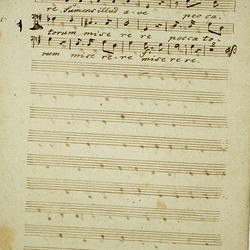 re. sumens illud ave peoca.
torum miserere peccato-
rum miserere miserere.